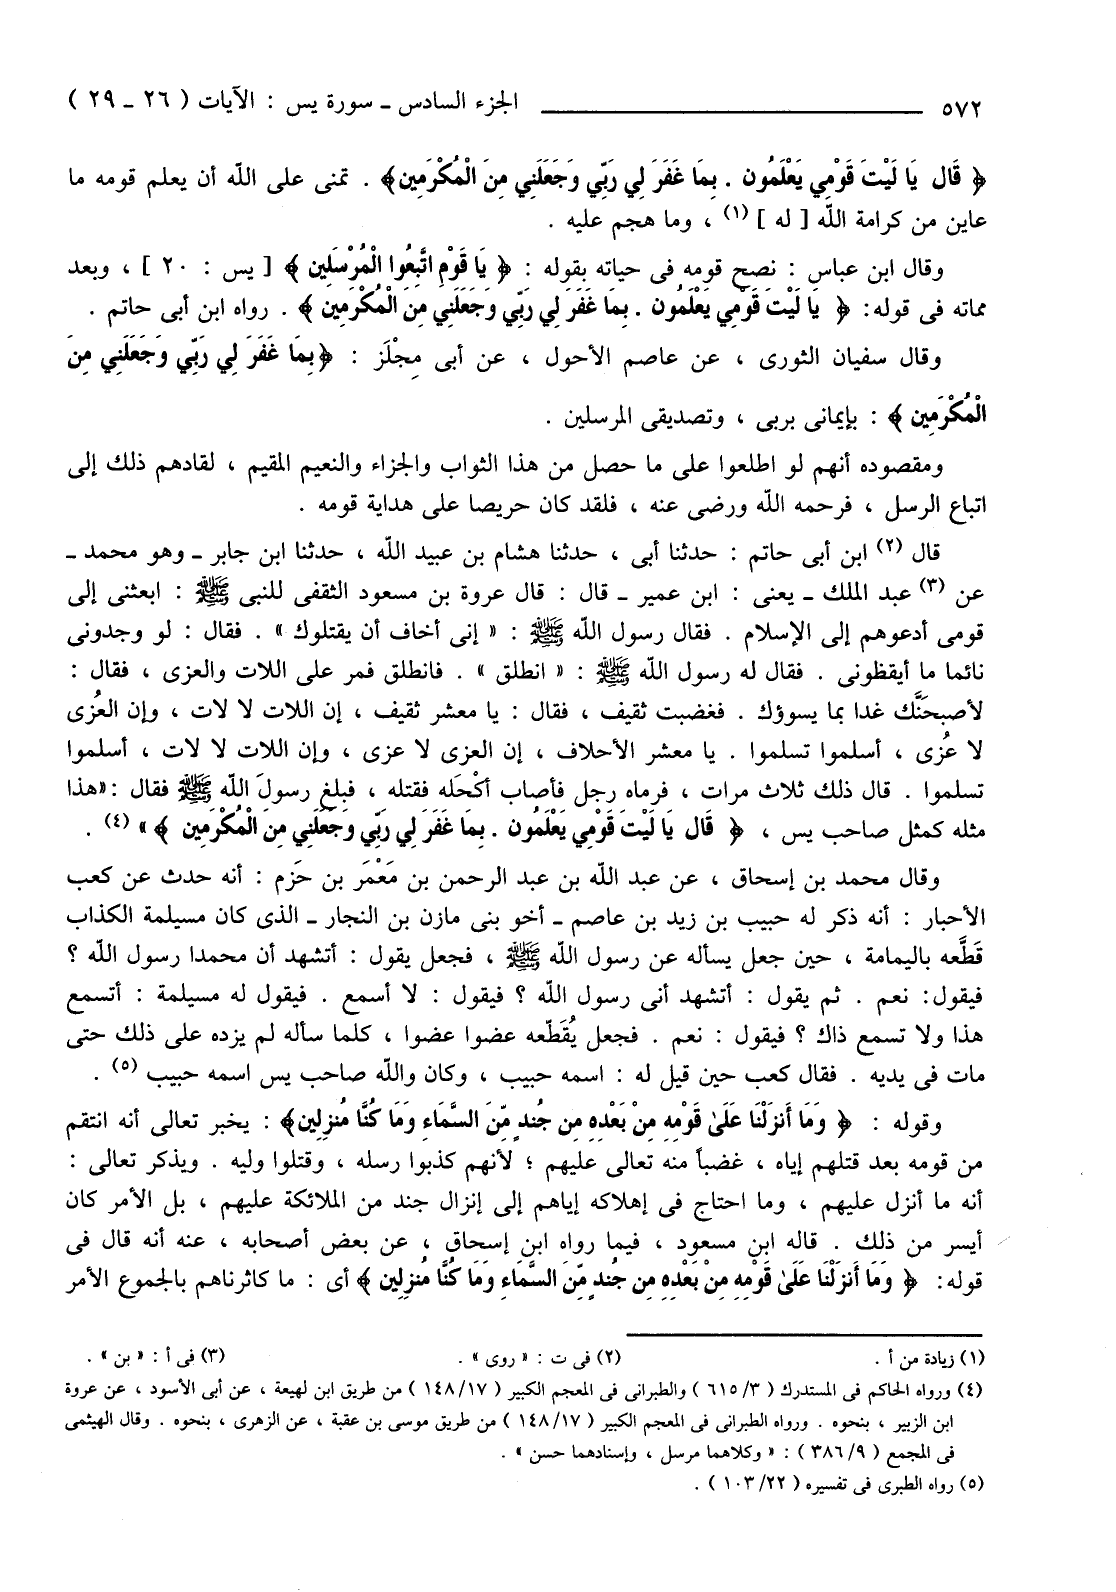 ٥٧٢ ــــــــــــــــــــ الجزء السادس ـ سورة يس : الآيات ( ٢٦ ـ ٢٩ )
﴿ قَالَ يَا لَيْتَ قَوْمِي يَعْلَمُونَ . بِمَا غَفَرَ لِي رَبِّي وَجَعَلَنِي مِنَ الْمُكْرَمِين﴾ . تمنى على اللّه أن يعلم قومه ما
عاين من كرامة اللّه [ له ] (١) ، وما هجم عليه .
وقال ابن عباس : نصح قومه فى حياته بقوله : ﴿ يَا قَوْمِ اتَّبِعُوا الْمُرْسَلِين ﴾ [ يس : ٢٠ ] ، وبعد
مماته فى قوله: ﴿ يَا لَيْتَ قَوْمِي يَعْلَمُون . بِمَا غَفَرَ لِي رَبِّي وَجَعَلَنِي مِنَ الْمُكْرَمِين ﴾ . رواه ابن أبى حاتم .
وقال سفيان الثورى ، عن عاصم الأحول ، عن أبى مِجْلَز : ﴿بِمَا غَفَرَ لِي رَبِّي وَجَعَلَنِي مِنَ
الْمُكْرَمِين ﴾ : بإيمانى بربى ، وتصديقى المرسلين .
ومقصوده أنهم لو اطلعوا على ما حصل من هذا الثواب والجزاء والنعيم المقيم ، لقادهم ذلك إلى
اتباع الرسل ، فرحمه اللّه ورضى عنه ، فلقد كان حريصا على هداية قومه .
قال (٢) ابن أبى حاتم : حدثنا أبى ، حدثنا هشام بن عبيد اللّه ، حدثنا ابن جابر ـ وهو محمد ـ
عن (٣) عبد الملك ـ يعنى : ابن عمير ـ قال : قال عروة بن مسعود الثقفى للنبى ﷺ : ابعثنى إلى
قومى أدعوهم إلى الإسلام . فقال رسول اللّه ﷺ : « إنى أخاف أن يقتلوك » . فقال : لو وجدونى
نائما ما أيقظونى . فقال له رسول اللّه ﷺ : « انطلق » . فانطلق فمر على اللات والعزى ، فقال :
لأصبحَنَّك غدا بما يسوؤك . فغضبت ثقيف ، فقال : يا معشر ثقيف ، إن اللات لا لات ، وإن العُزى
لا عُزى ، أسلموا تسلموا . يا معشر الأحلاف ، إن العزى لا عزى ، وإن اللات لا لات ، أسلموا
تسلموا . قال ذلك ثلاث مرات ، فرماه رجل فأصاب أكْحَله فقتله ، فبلغ رسولَ اللّه ﷺ فقال :«هذا
مثله كمثل صاحب يس ، ﴿ قَالَ يَا لَيْتَ قَوْمِي يَعْلَمُون . بِمَا غَفَرَ لِي رَبِّي وَجَعَلَنِي مِنَ الْمُكْرَمِين ﴾» (٤) .
وقال محمد بن إسحاق ، عن عبد اللّه بن عبد الرحمن بن مَعْمَر بن حَزم : أنه حدث عن كعب
الأحبار : أنه ذكر له حبيب بن زيد بن عاصم ـ أخو بنى مازن بن النجار ـ الذى كان مسيلمة الكذاب
قَطَّعه باليمامة ، حين جعل يسأله عن رسول اللّه ﷺ ، فجعل يقول : أتشهد أن محمدا رسول اللّه ؟
فيقول: نعم . ثم يقول : أتشهد أنى رسول اللّه ؟ فيقول : لا أسمع . فيقول له مسيلمة : أتسمع
هذا ولا تسمع ذاك ؟ فيقول : نعم . فجعل يُقَطِّعه عضوا عضوا ، كلما سأله لم يزده على ذلك حتى
مات فى يديه . فقال كعب حين قيل له : اسمه حبيب ، وكان واللّه صاحب يس اسمه حبيب (٥) .
وقوله : ﴿ وَمَا أَنزَلْنَا عَلَىٰ قَوْمِهِ مِنْ بَعْدِهِ مِن جُندٍ مِّنَ السَّمَاءِ وَمَا كُنَّا مُنزِلِين﴾ : يخبر تعالى أنه انتقم
من قومه بعد قتلهم إياه ، غضباً منه تعالى عليهم ؛ لأنهم كذبوا رسله ، وقتلوا وليه . ويذكر تعالى :
أنه ما أنزل عليهم ، وما احتاج فى إهلاكه إياهم إلى إنزال جند من الملائكة عليهم ، بل الأمر كان
أيسر من ذلك . قاله ابن مسعود ، فيما رواه ابن إسحاق ، عن بعض أصحابه ، عنه أنه قال فى
قوله: ﴿ وَمَا أَنزَلْنَا عَلَىٰ قَوْمِهِ مِنْ بَعْدِهِ مِن جُندٍ مِّنَ السَّمَاءِ وَمَا كُنَّا مُنزِلِين ﴾ أى : ما كاثرناهم بالجموع الأمر
(١) زيادة من أ . (٢) فى ت : « روى » . (٣) فى أ : « بن » .
(٤) ورواه الحاكم فى المستدرك ( ٣/ ٦١٥ ) والطبرانى فى المعجم الكبير ( ١٧/ ١٤٨ ) من طريق ابن لهيعة ، عن أبى الأسود ، عن عروة
ابن الزبير ، بنحوه . ورواه الطبرانى فى المعجم الكبير ( ١٧/ ١٤٨ ) من طريق موسى بن عقبة ، عن الزهرى ، بنحوه . وقال الهيثمى
فى المجمع ( ٩/ ٣٨٦ ) : « وكلاهما مرسل ، وإسنادهما حسن » .
(٥) رواه الطبرى فى تفسيره ( ٢٢/ ١٠٣ ) .